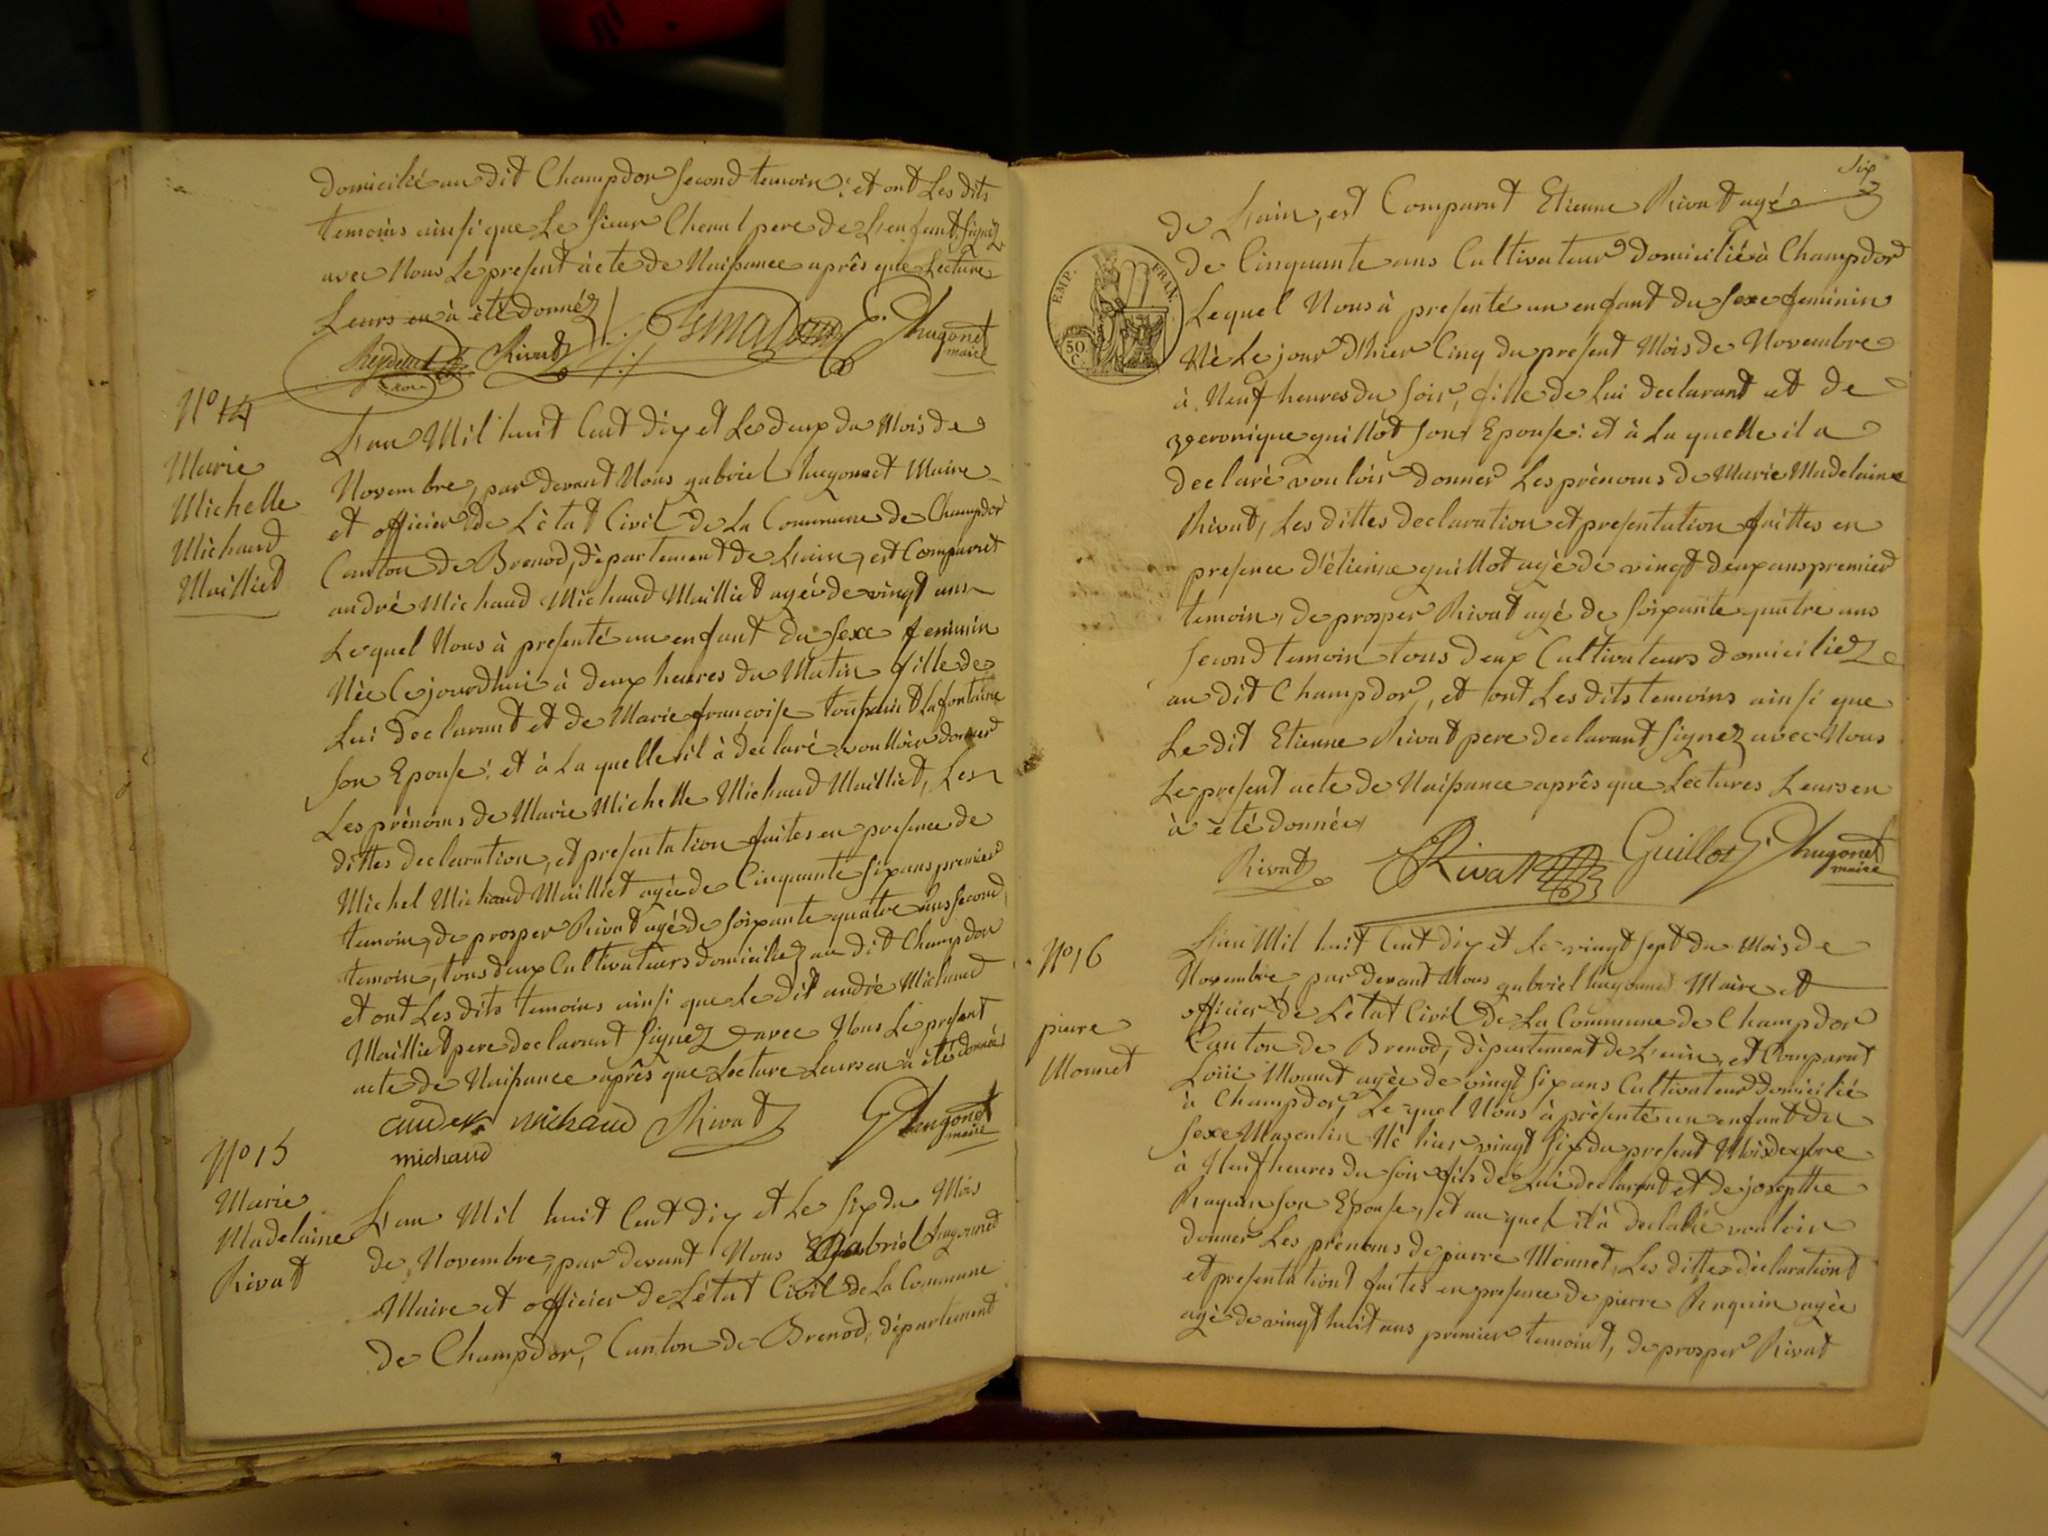 domicilié au dit Champdor second temoin; et ont Les dits
temoins ainsi que Le sieur pere de L'enfant signez
avec Nous Le present àcte de Naissance après que Lecture
Leurs en à été donnéz
Rivat
hugonet
maire
N° 14
Marie
Michelle
Michaud
Mailliet
L'an Mil huit Cent dix et Le deux du Mois de
Novembre, par devant Nous gabriel hugonnet Maire
et officier de L'état Civil de La Commune de Champdor
Canton de Brenod, département de L'ain, est Comparut
andré Michaud Michaud Mailliet agée de vingt ans
Lequel Nous à presenté un enfant du sexe feminin
Née Ce jourdhui à deux heures du Matin fille de
Lui declarant et de Marie françoise Lafontaine
son Epouse; et à La quelle il à declaré voulloir donner
Les prénoms de Marie Michelle Michaud Mailliet, Les
dittes declaration, et presentation faites en presence de
Michel Michaud Mailliet agée de Cinquante six ans premier
temoin, de prosper Rivat agé de soixante quatre ans second
temoin, tous deux Cultivateurs domiciliez au dit Champdor
et ont Les dits temoins ainsi que Le dit andré Michaud
Mailliet pere declarant signez avec Nous Le present
acte de Naissance après que Lecture Leurs en à été donnée
michaud Rivat hugonet
maire
michaud
N° 15
Marie
Madelaine
Rivat
L'an Mil huit Cent dix et Le six du Mois
de Novembre, par devant Nous Gabriel hugonnet
Maire et officier de L'état Civil de La Commune
de Champdor, Canton de Brenod, département
six
de L'ain, est Comparut Etienne Rivat agé
de Cinquante ans Cultivateur domicilié à Champdor
EMP. FRAN.
50
C.
Lequel Nous à presenté un enfant du sexe feminin
Né Le jour D'hier Cinq du present Mois de Novembre
à Neuf heures du soir, fille de Lui declarant et de
veronique guillot son Epouse; et à La quelle il a
declaré vouloir donner Les prénoms de Marie Madelaine
Rivat, Les dittes declaration et presentation faittes en
presence d'étienne guillot agé de vingt deux ans premier
temoin, de prosper Rivat agé de soixante quatre ans
second temoin tous deux Cultivateurs domiciliez
au dit Champdor, et ont Les dits temoins ainsi que
Le dit Etienne Rivat pere declarant signez avec Nous
Le present acte de Naissance après que Lectures Leurs en
à été donnée
Rivat Rivat Guillot hugonet
maire
N° 16
pierre
Monnet
L'an Mil huit Cent dix et Le vingt sept du Mois de
Novembre, par devant Nous gabriel hugonnet Maire et
officier de L'état Civil de La Commune de Champdor
Canton de Brenod, département de L'ain, est Comparut
Loüi Monnet agée de vingt six ans Cultivateur domicilié
à Champdor, Le quel Nous à présenté un enfant du
sexe Masculin Né hier vingt six du present Mois de xbre
à Neuf heures du soir fils de Lui declarant et de josepthe
Raquin son Epouse, et au quel il à declaré vouloir
donner Les prénoms de pierre Monnet, Les dittes déclarationt
et presentationt faites en presence de pierre Raquin agée
agé de vingt huit ans premier temoint, de prosper Rivat